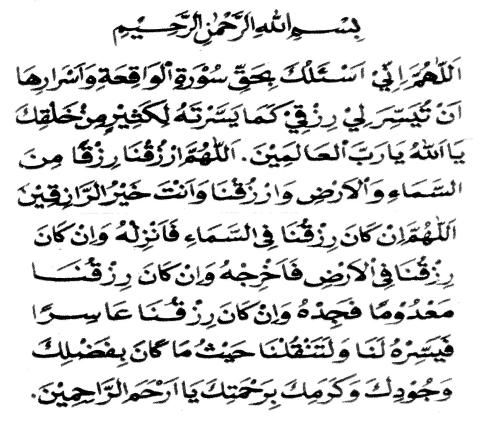 بِسْمِ اللهِ الرَّحْمٰنِ الرَّحِيْمِ
اَللّٰهُمَّ اِنِّيْ اَسْـَٔلُكَ بِحَقِّ سُوْرَةِ الْوَاقِعَةِ وَاَسْرَارِهَا
اَنْ تُيَسِّرَ لِيْ رِزْقِيْ كَمَا يَسَّرْتَهُ لِكَثِيْرٍ مِنْ خَلْقِكَ
يَا اَللهُ يَا رَبَّ الْعَالَمِيْنَ. اَللّٰهُمَّ ارْزُقْنَا رِزْقًا مِنَ
السَّمَاءِ وَالْاَرْضِ وَارْزُقْنَا وَاَنْتَ خَيْرُ الرَّازِقِيْنَ
اَللّٰهُمَّ اِنْ كَانَ رِزْقُنَا فِى السَّمَاءِ فَاَنْزِلْهُ وَاِنْ كَانَ
رِزْقُنَا فِى الْاَرْضِ فَاَخْرِجْهُ وَاِنْ كَانَ رِزْقُنَا
مَعْدُوْمًا فَجِدْهُ وَاِنْ كَانَ رِزْقُنَا عَاسِرًا
فَيَسِّرْهُ لَنَا وَلْتَنْقُلْنَا حَيْثُ مَا كَانَ بِفَضْلِكَ
وَجُوْدِكَ وَكَرَمِكَ بِرَحْمَتِكَ يَا اَرْحَمَ الرَّاحِمِيْنَ.